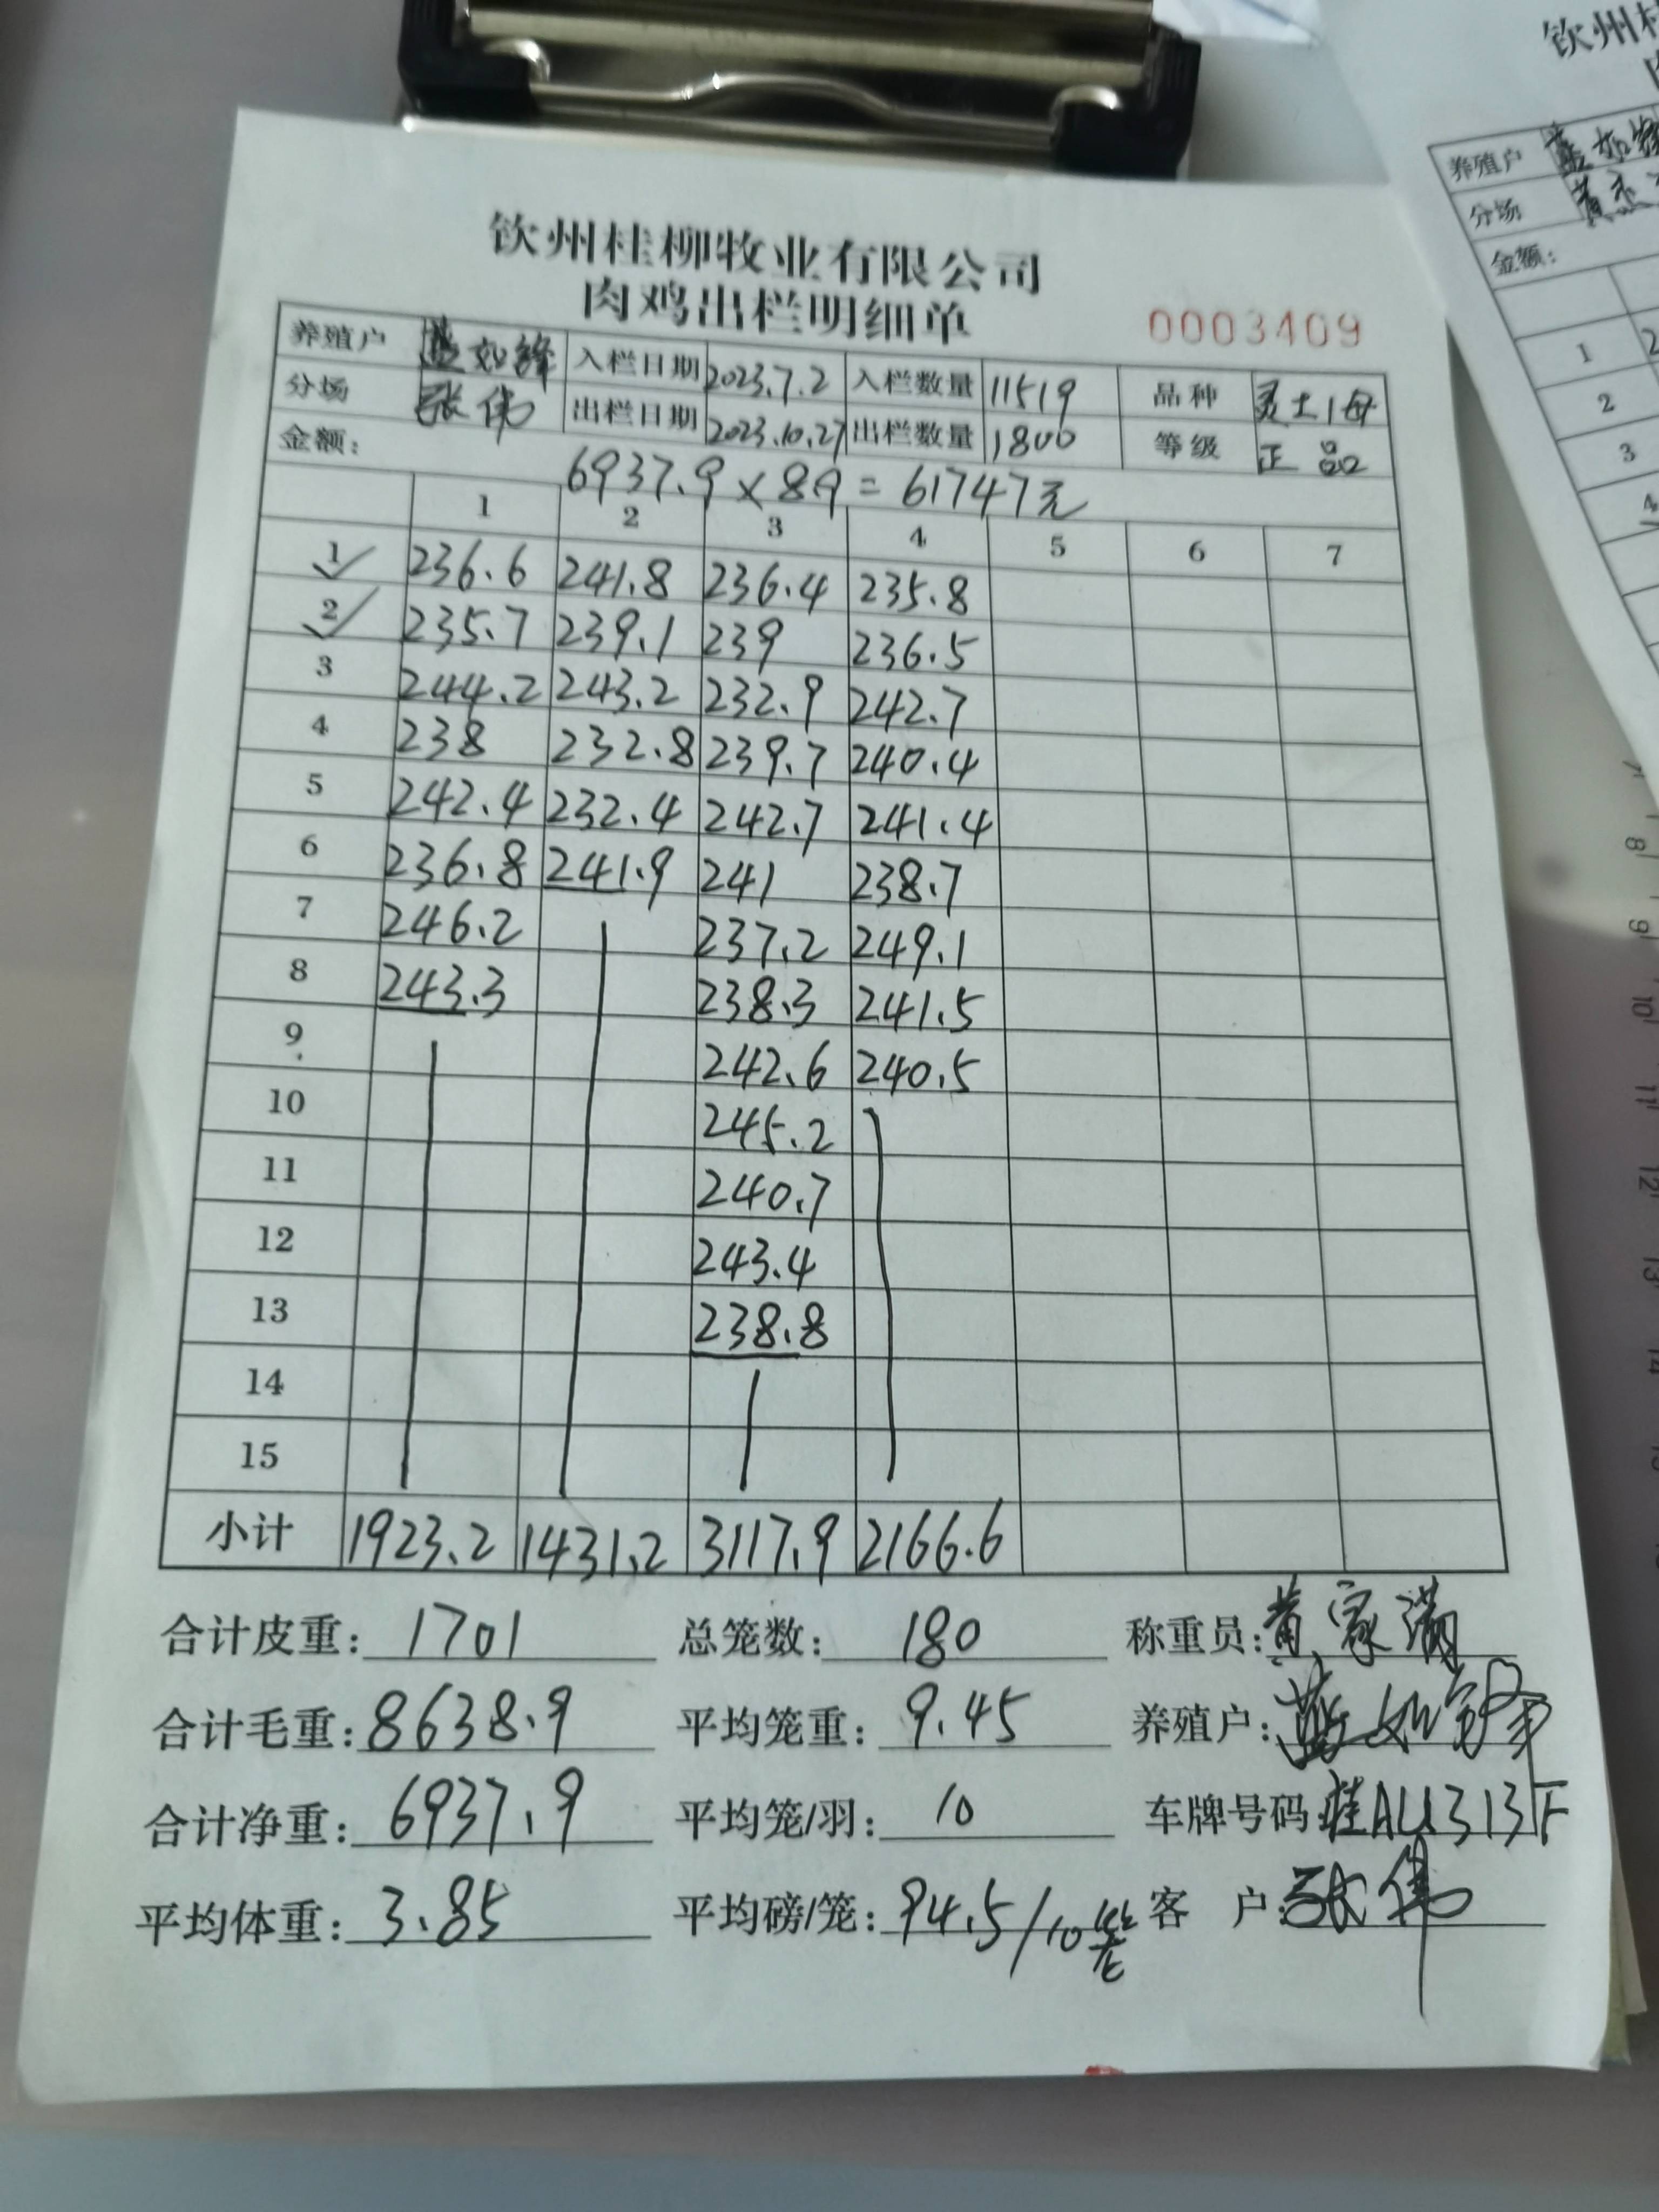 钦州桂柳牧业有限公司
肉鸡出栏明细单
0003409
养殖户 蓝如锋 入栏日期 2023.7.2 入栏数量 11519 品种 灵土1母
分场 张伟 出栏日期 2023.10.27 出栏数量 1800 等级 正品
金额: 6937.9×89=61747元
1 2 3 4 5 6 7
1 236.6 241.8 236.4 235.8
2 235.7 239.1 239 236.5
3 244.2 243.2 232.9 242.7
4 238 232.8 239.7 240.4
5 242.4 232.4 242.7 241.4
6 236.8 241.9 241 238.7
7 246.2 237.2 249.1
8 243.3 238.3 241.5
9 242.6 240.5
10 245.2
11 240.7
12 243.4
13 238.8
14
15
小计 1923.2 1431.2 3117.9 2166.6
合计皮重: 1701 总笼数: 180 称重员: 黄家满
合计毛重: 8638.9 平均笼重: 9.45 养殖户: 蓝如锋
合计净重: 6937.9 平均笼/羽: 10 车牌号码: 桂AU313F
平均体重: 3.85 平均磅/笼: 94.5/10笼 客户: 张伟
钦州桂
养殖户 蓝如锋
分场
金额:
1 2
2
3
4
7
8
9
10
11
12
13
14